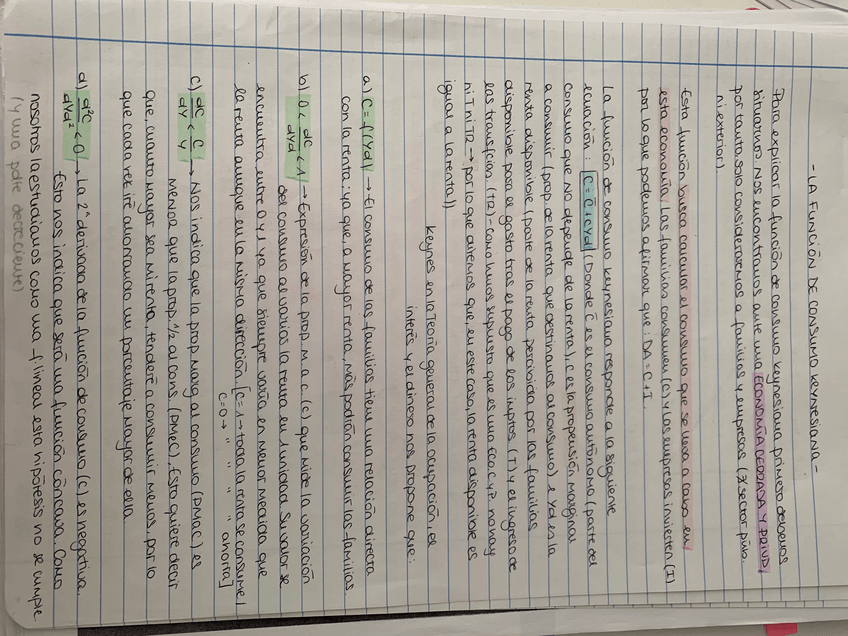 - LA FUNCIÓN DE CONSUMO KEYNESIANA -
Para explicar la función de consumo keynesiana primero debemos
situarnos. Nos encontramos ante una ECONOMÍA CERRADA Y PRIVD,
por tanto, solo consideraremos a familias y empresas (∄ sector púbo.
ni exterior)
Esta función busca calcular el consumo que se lleva a cabo en
esta economía. Las familias consumen (C) y las empresas invierten (I)
por lo que podemos afirmar que: DA = C + I.
La función de consumo keynesiana responde a la siguiente
ecuación: C = C̄ + cYd (Donde C̄ es el consumo autónomo (parte del
consumo que NO depende de la renta), c es la propensión marginal
a consumir (prop. de la renta que destinamos al consumo) e Yd es la
renta disponible (parte de la renta percibida por las familias
disponible para el gasto tras el pago de los imptos (T) y el ingreso de
las transfcias (TR) - como hemos supuesto que es una eco. C y P no hay
ni T ni TR → por lo que diremos que, en este caso, la renta disponible es
igual a la renta))
Keynes en la Teoría general de la ocupación, el
interés y el dinero nos propone que:
a) C = f(Yd) → El consumo de las familias tiene una relación directa
con la renta; ya que, a mayor renta, más podrán consumir las familias
b) 0 < dC/dYd < 1 → Expresión de la prop. m. a c. (c) que mide la variación
del consumo al variar la renta en 1 unidad. Su valor se
encuentra entre 0 y 1 ya que siempre varía en menor medida que
la renta aunque en la misma dirección. [c=1 → toda la renta se consume /
c=0 → " " " " ahorra]
c) dC/dY < C/Y → Nos indica que la prop. marg al consumo (PMaC) es
MENOR que la prop. 1/2 al cons. (PMeC). Esto quiere decir
que, cuanto mayor sea mi renta, tenderé a consumir menos, por lo
que cada vez iré ahorrando un porcentaje mayor de ella
d) d²C/dYd² < 0 → La 2ª derivada de la función de consumo (C) es negativa.
Esto nos indica que será una función cóncava. Como
nosotros la estudiamos como una f. lineal esta hipótesis no se cumple
(y una pdte decreciente)